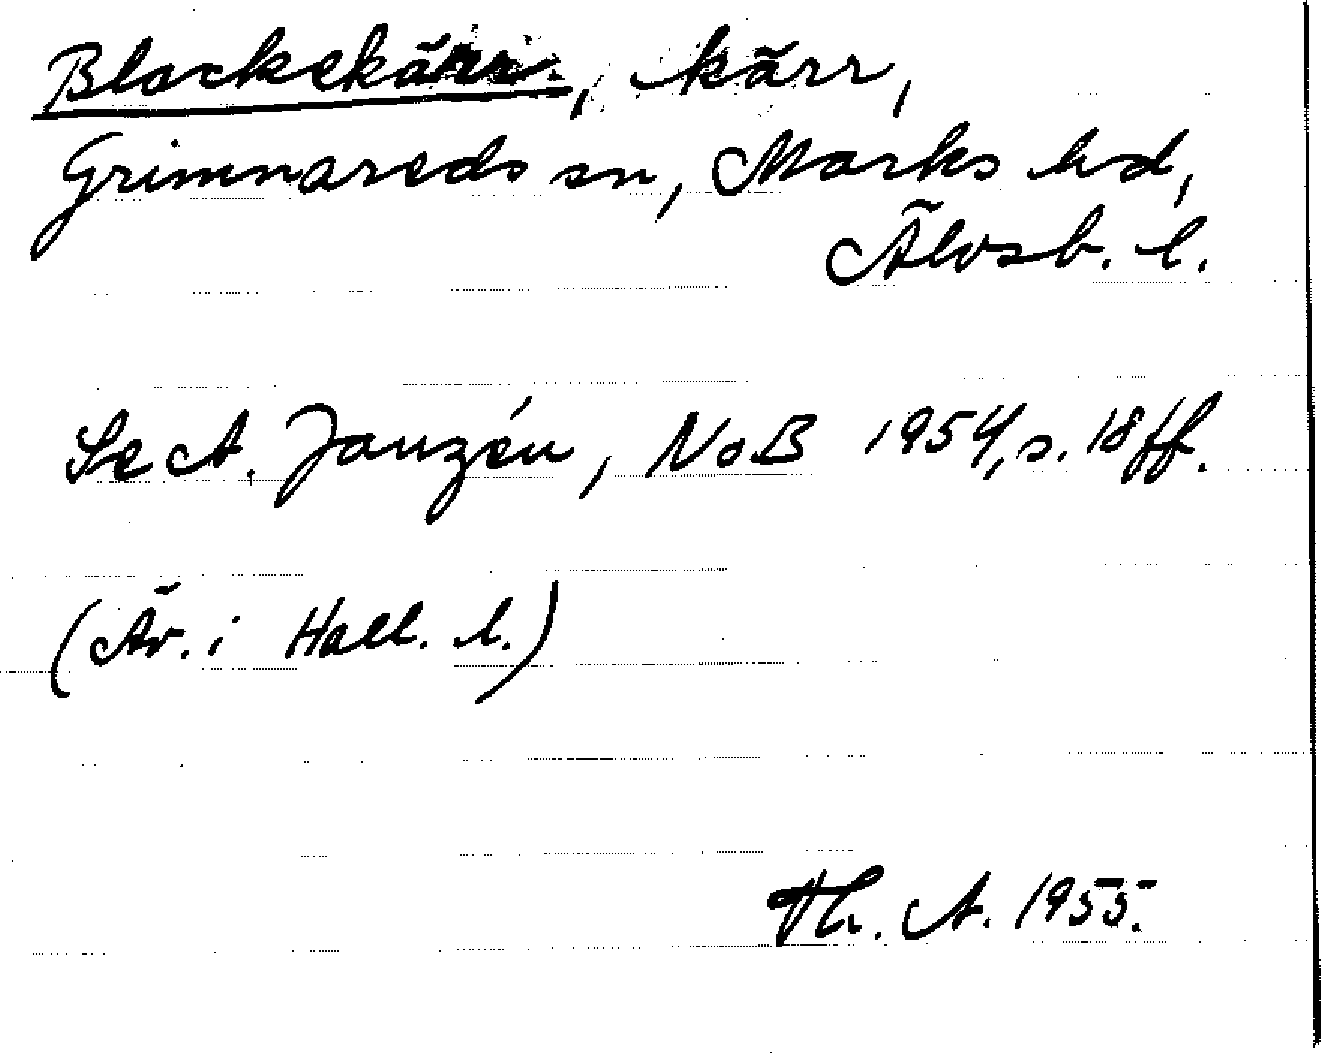 Blockekärr, kärr,
Grimmareds sn, Marks hd,
Älvsb. l.
Se A. Janzén, NoB 1954, s. 18 ff.
(Äv. i Hall. l.)
Th. A. 1955.